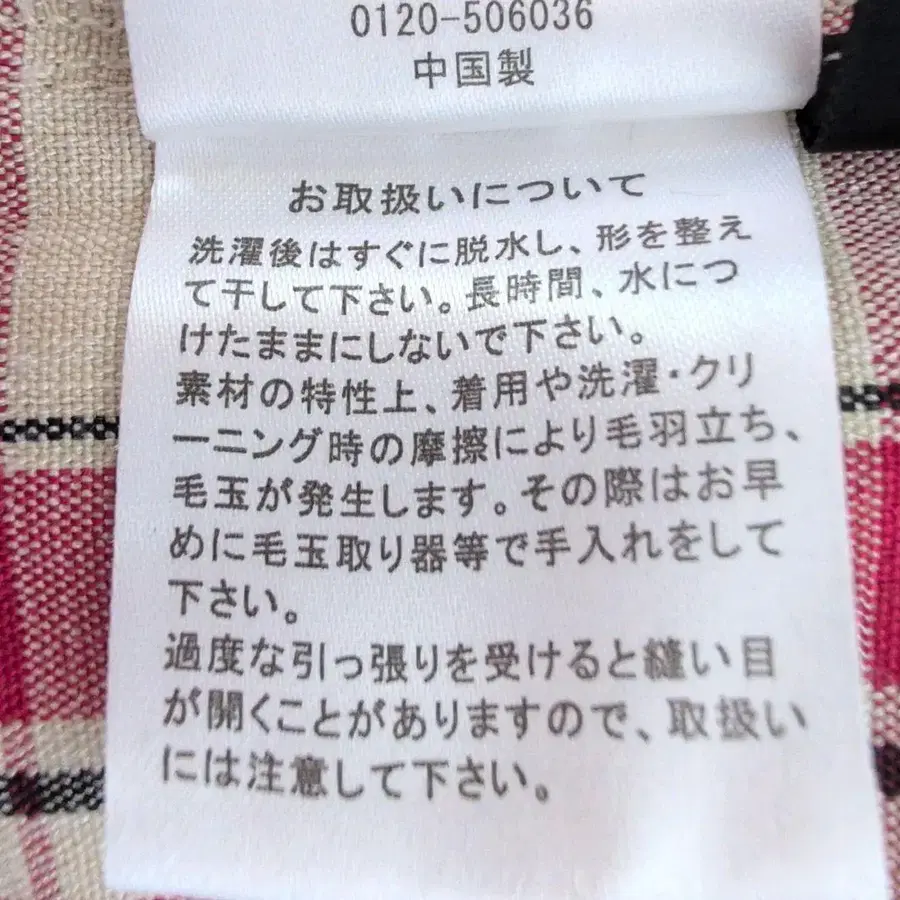 0120-506036
中国製
お取扱いについて
洗濯後はすぐに脱水し、形を整え
て干して下さい。長時間、水につ
けたままにしないで下さい。
素材の特性上、着用や洗濯・クリ
ーニング時の摩擦により毛羽立ち、
毛玉が発生します。その際はお早
めに毛玉取り器等で手入れをして
下さい。
過度な引っ張りを受けると縫い目
が開くことがありますので、取扱い
には注意して下さい。